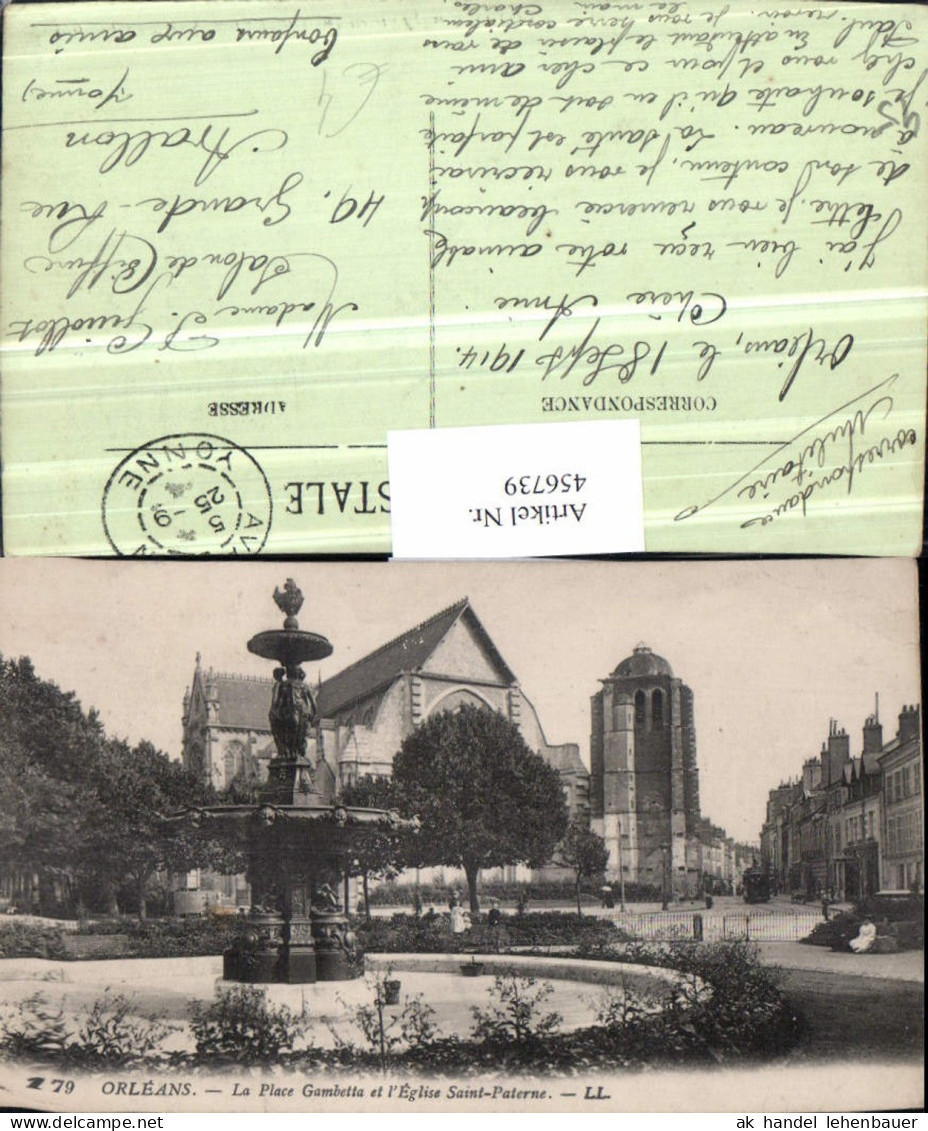 CARTE POSTALE
Correspondance
Militaire
CORRESPONDANCE
ADRESSE
Orléans, le 18 Sept 1914.
Chère Amie.
J'ai bien reçu votre aimable
lettre. je vous remercie beaucoup
de son contenu, je vous récrirai
à nouveau. La santé est parfaite
je souhaite qu'il en soit de même
chez vous et pour ce cher ami
Paul. En attendant le plaisir de vous
revoir. Je vous serre cordialement
la main. Charles.
Madame J. Guillot
Salon de Coiffure
49. Grande-Rue
Avallon
(Yonne)
Bonjour aux amis
€4
YONNE
25
Artikel Nr.
456739
79 ORLÉANS. — La Place Gambetta et l'Église Saint-Paterne. — LL.
ak handel lehenbauer